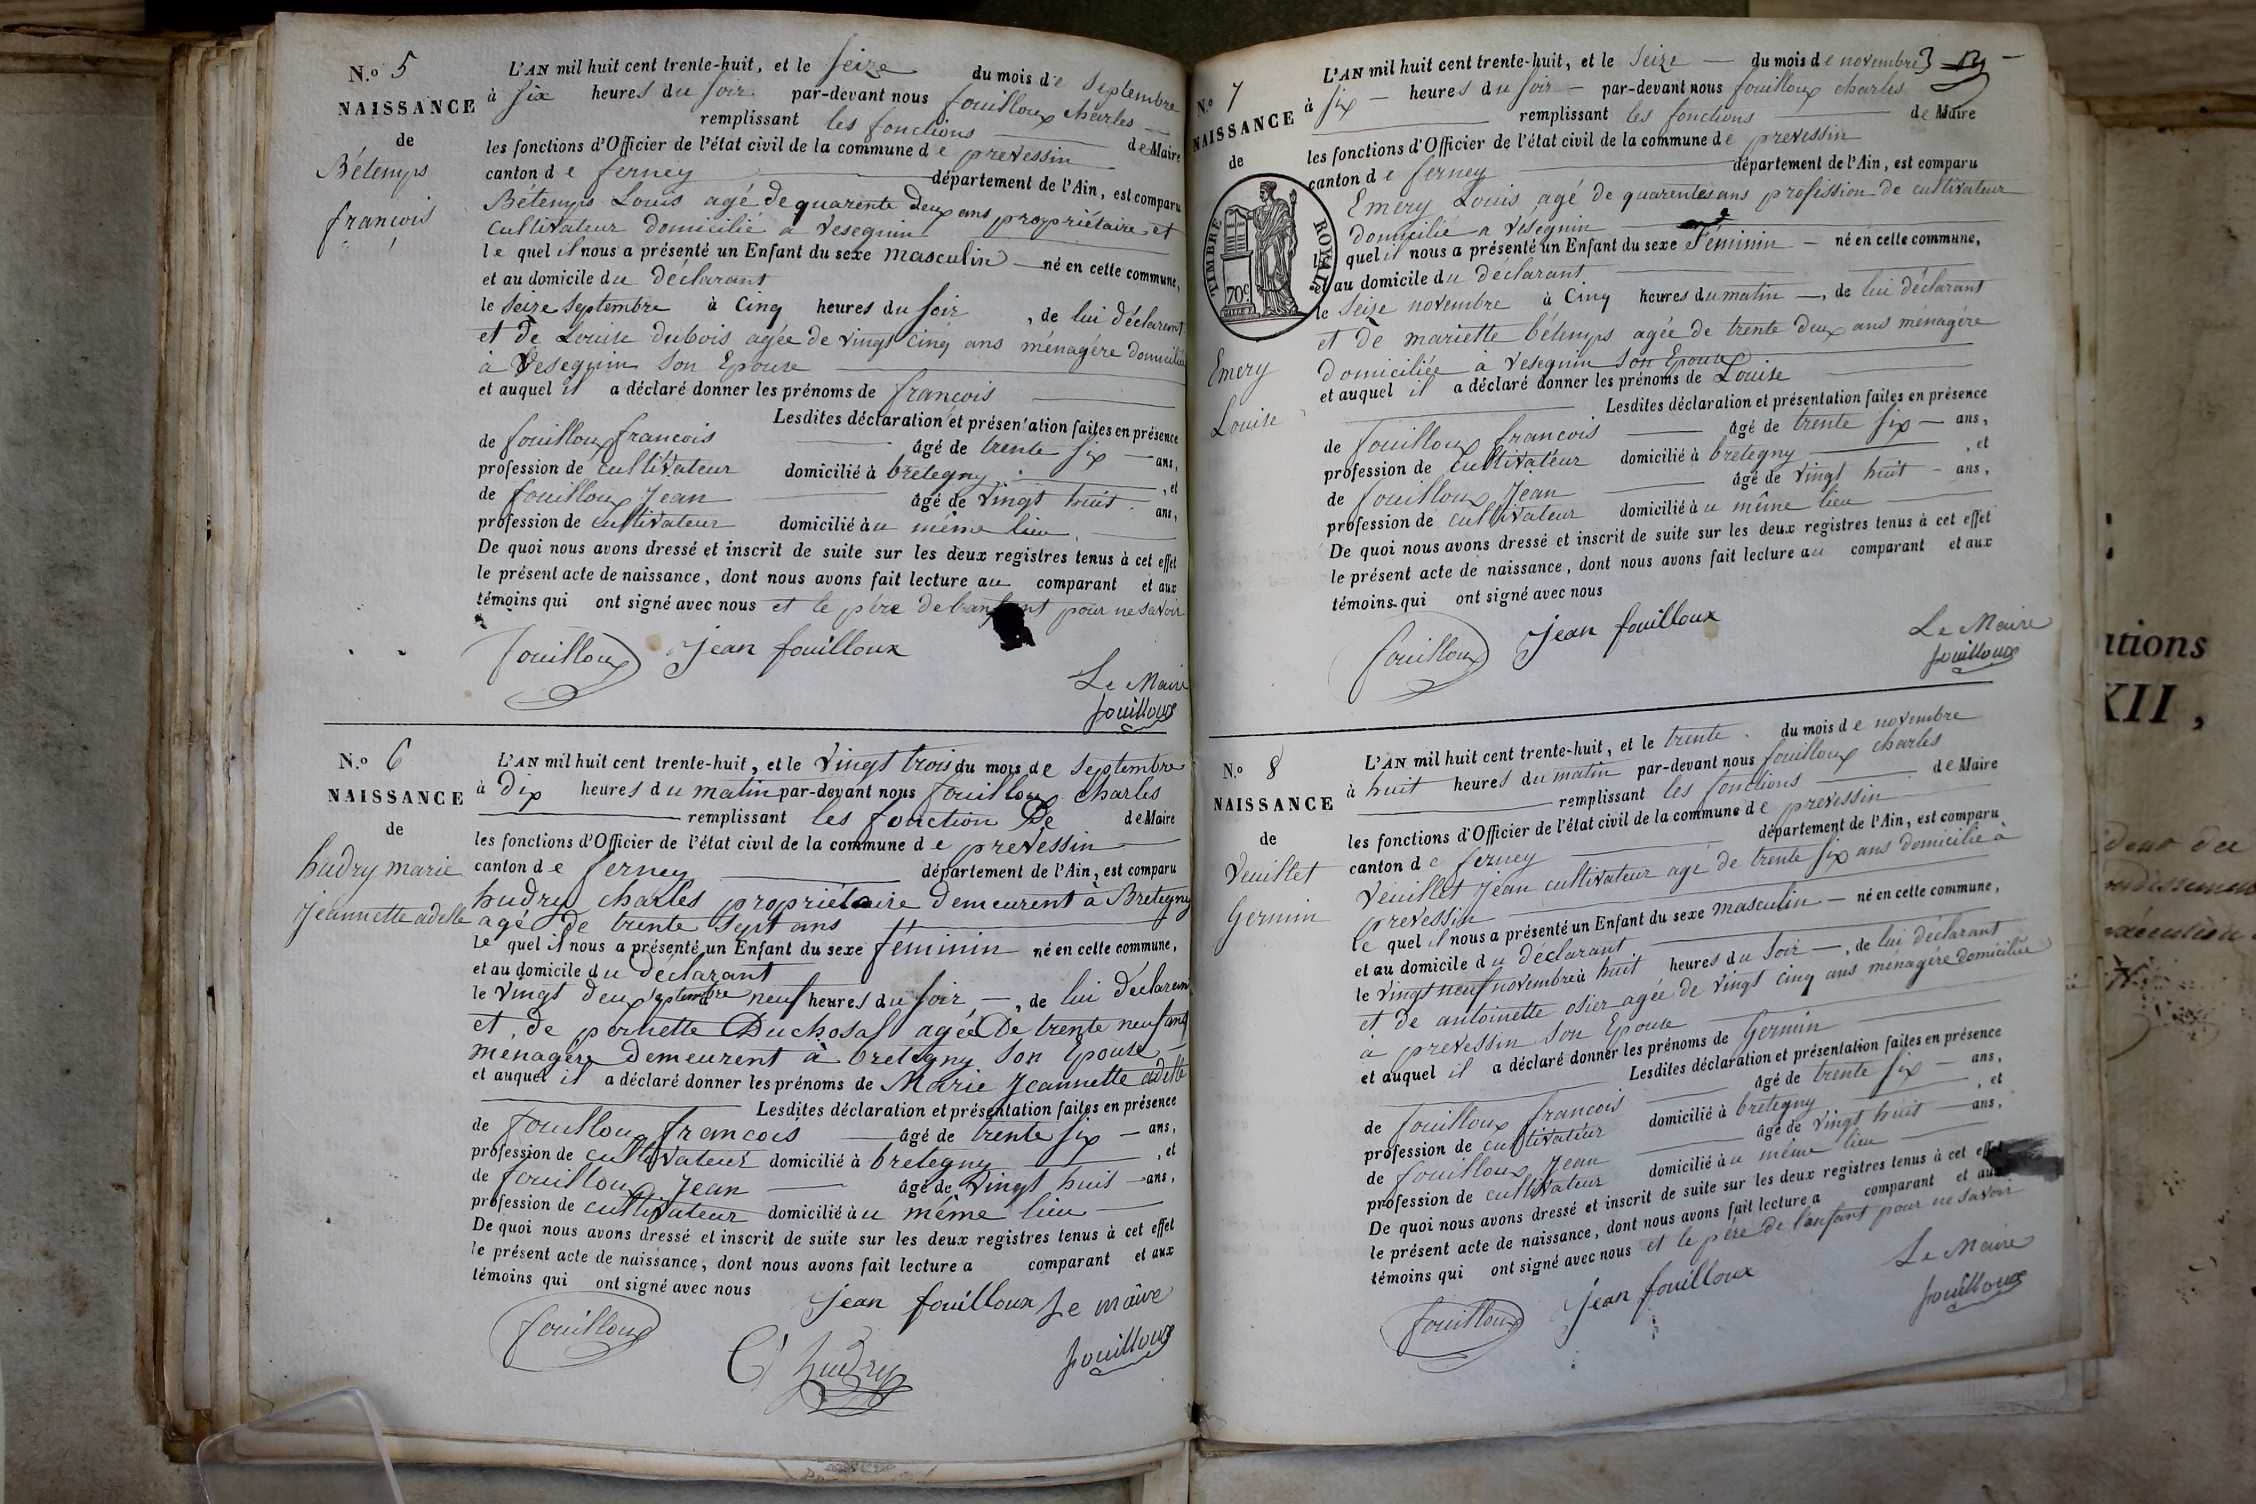 N.º 5
NAISSANCE
de
Bétemps
françois
L'AN mil huit cent trente-huit, et le seize du mois de septembre
à six heures du soir par-devant nous fouilloux charles
remplissant les fonctions de Maire
les fonctions d'Officier de l'état civil de la commune de prevessin
canton de ferney département de l'Ain, est comparu
Bétemps Louis agé de quarente deux ans propriétaire et
cultivateur domicilié a vesegnin
le quel il nous a présenté un Enfant du sexe masculin né en cette commune,
et au domicile du déclarant
le seize septembre à cinq heures du soir, de lui déclarent
et de Louise dubois agée de vingt cinq ans ménagére domiciliée
à vesegnin son Epouse
et auquel il a déclaré donner les prénoms de françois
Lesdites déclaration et présentation faites en présence
de fouilloux francois âgé de trente six ans,
profession de cultivateur domicilié à bretegny, et
de fouilloux jean âgé de vingt huit ans,
profession de cultivateur domicilié au même lieu
De quoi nous avons dressé et inscrit de suite sur les deux registres tenus à cet effet
le présent acte de naissance, dont nous avons fait lecture au comparant et aux
témoins qui ont signé avec nous et le pére de l'anfant pour ne savoir
fouilloux jean fouilloux
Le Maire
fouilloux
N.º 6
NAISSANCE
de
hudry marie
jeannette adelle
L'AN mil huit cent trente-huit, et le vingt trois du mois de septembre
à dix heures du matin par-devant nous fouilloux charles
remplissant les fonction De de Maire
les fonctions d'Officier de l'état civil de la commune de prevessin
canton de ferney département de l'Ain, est comparu
hudry charles propriétaire demeurent à Bretegny
agé de trente sept ans
le quel il nous a présenté un Enfant du sexe féminin né en cette commune,
et au domicile du déclarant
le vingt deux septembre neuf heures du soir, de lui déclarent
et de pernette Duchosal agée De trente neuf ans
ménagére demeurent à bretegny son épouse
et auquel il a déclaré donner les prénoms de Marie jeannette adelle
Lesdites déclaration et présentation faites en présence
de fouilloux francois âgé de trente six ans,
profession de cultivateur domicilié à bretegny, et
de fouilloux jean âgé de vingt huit ans,
profession de cultivateur domicilié au même lieu
De quoi nous avons dressé et inscrit de suite sur les deux registres tenus à cet effet
le présent acte de naissance, dont nous avons fait lecture a comparant et aux
témoins qui ont signé avec nous
fouilloux jean fouilloux Le maire
C hudry fouilloux
N.º 7
NAISSANCE
de
TIMBRE ROYAL
70c.
Emery
Louise
L'AN mil huit cent trente-huit, et le seize du mois de novembre 3
à six heures du soir par-devant nous fouilloux charles
remplissant les fonctions de Maire
les fonctions d'Officier de l'état civil de la commune de prevessin
canton de ferney département de l'Ain, est comparu
Emery Louis agé de quarente ans profission de cultivateur
domicilié a vesegnin
le quel il nous a présenté un Enfant du sexe féminin né en cette commune,
et au domicile du déclarant
le seize novembre à cinq heures du matin, de lui déclarant
et de mariette bétemps agée de trente deux ans menagére
domiciliée à vesegnin son Epouse
et auquel il a déclaré donner les prénoms de Louise
Lesdites déclaration et présentation faites en présence
de fouilloux francois âgé de trente six ans,
profession de cultivateur domicilié à bretegny, et
de fouilloux jean âgé de vingt huit ans,
profession de cultivateur domicilié au même lieu
De quoi nous avons dressé et inscrit de suite sur les deux registres tenus à cet effet
le présent acte de naissance, dont nous avons fait lecture au comparant et aux
témoins qui ont signé avec nous
fouilloux jean fouilloux Le Maire
fouilloux
N.º 8
NAISSANCE
de
Veuillet
Germin
L'AN mil huit cent trente-huit, et le trente du mois de novembre
à huit heures du matin par-devant nous fouilloux charles
remplissant les fonctions de Maire
les fonctions d'Officier de l'état civil de la commune de prevessin
canton de ferney département de l'Ain, est comparu
Veuillet jean cultivateur agé de trente six ans domicilié à
prevessin
le quel il nous a présenté un Enfant du sexe masculin né en cette commune,
et au domicile du déclarant
le vingt neuf novembre à huit heures du soir, de lui déclarant
et de antoinette osier agée de vingt cinq ans ménagére domiciliée
à prevessin son Epouse
et auquel il a déclaré donner les prénoms de Germin
Lesdites déclaration et présentation faites en présence
de fouilloux francois âgé de trente six ans,
profession de cultivateur domicilié à bretegny, et
de fouilloux jean âgé de vingt huit ans,
profession de cultivateur domicilié au même lieu
De quoi nous avons dressé et inscrit de suite sur les deux registres tenus à cet effet
le présent acte de naissance, dont nous avons fait lecture a comparant et aux
témoins qui ont signé avec nous et le pére de l'anfant pour ne savoir
fouilloux jean fouilloux Le Maire
fouilloux
utions
XII,